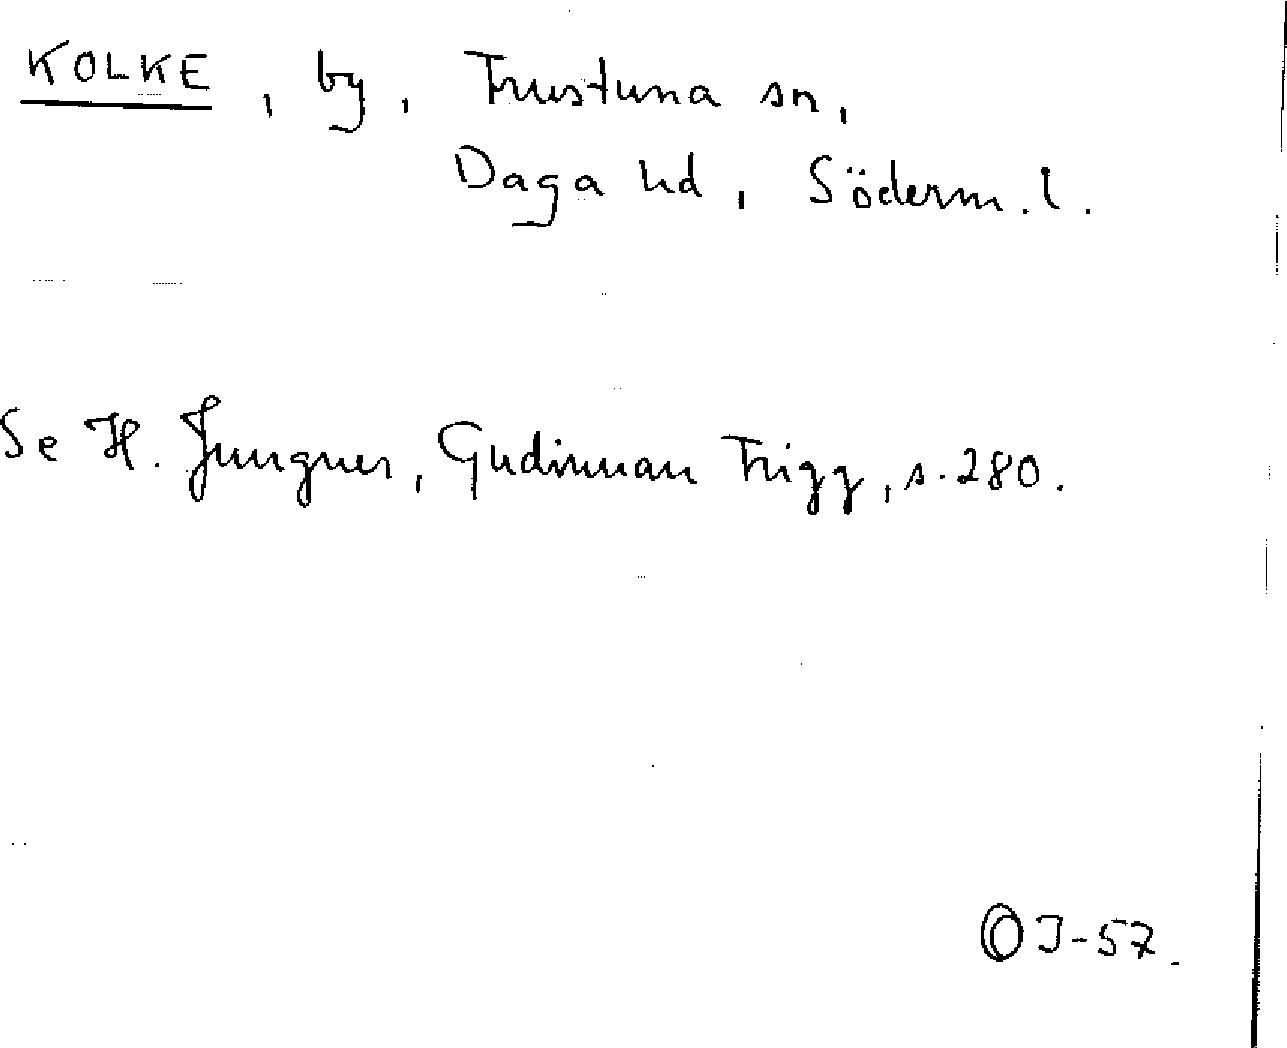 KOLKE, by, Frustuna sn,
Daga hd, Söderm. l.
Se H. Jungner, Gudinnan Frigg, s. 280.
OJ-57.